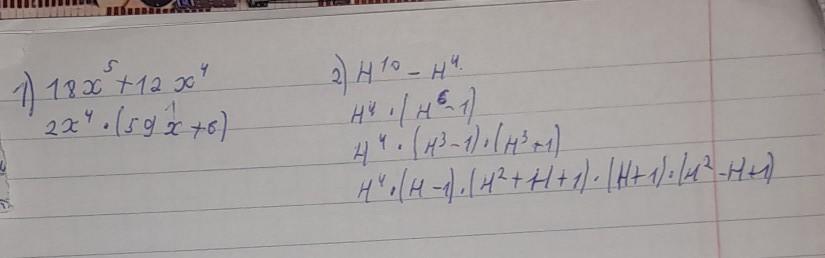 1) 18x⁵+12x⁴
2x⁴·(59x¹+6)
2) H¹⁰-H⁴.
H⁴·(H⁶-1)
H⁴·(H³-1)·(H³+1)
H⁴·(H-1)·(H²+H+1)·(H+1)·(H²-H+1)